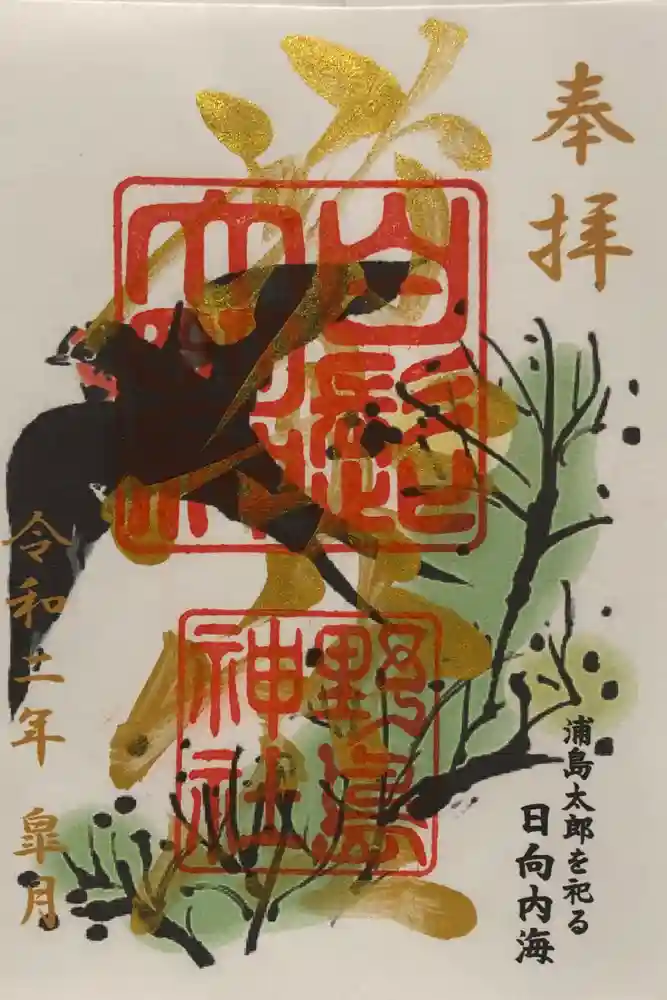 奉拝
浦島太郎を祀る
日向内海
野嶌
神社
令和二年 皐月